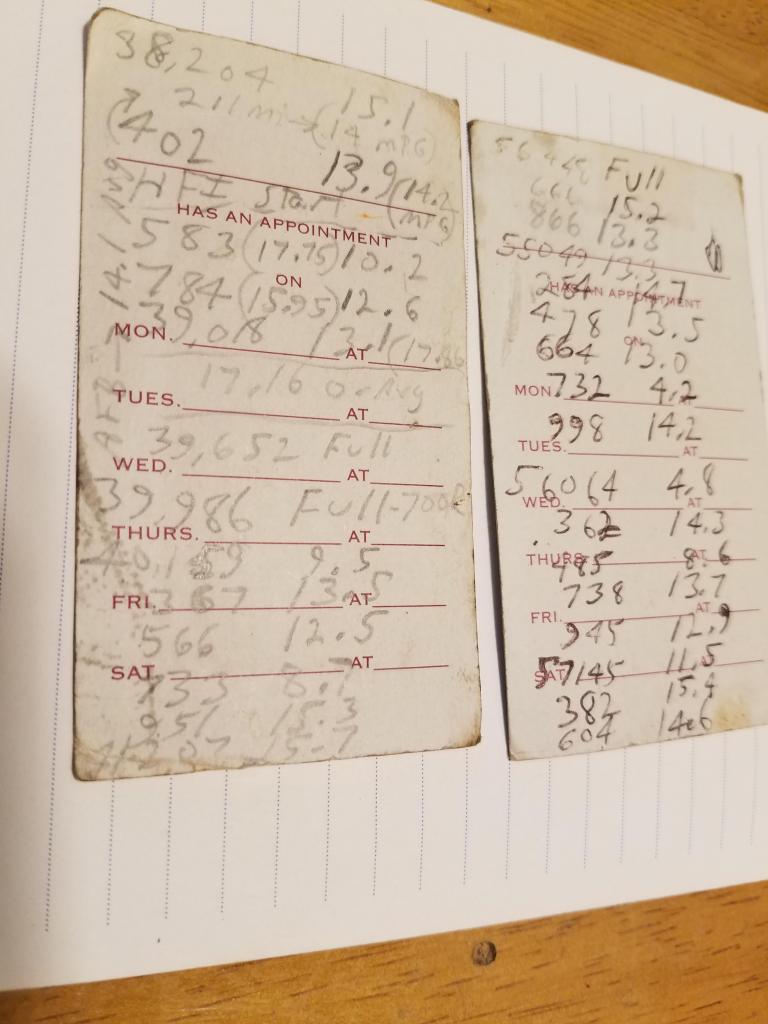 38,204 15.1
211 mi → (14 MPG)
(402 13.9 (14.2 MPG)
HFI Start
HAS AN APPOINTMENT
583 (17.75) 10.2
ON
784 (15.95) 12.6
39,018 13.1 (17.86
MON. AT
17.16 Avg
TUES. AT
39,652 Full
WED. AT
39,986 Full-700R
THURS. AT
40,159 9.5
FRI. AT
367 13.5
566 12.5
SAT. AT
733 8.7
951 15.3
15.7
Full
666 15.2
866 13.3
55049 13.3
254 14.7
HAS AN APPOINTMENT
478 13.5
ON
664 13.0
MON. AT
732 4.2
998 14.2
TUES. AT
56064 4.8
WED. AT
362 14.3
THURS. AT
485 8.6
738 13.7
FRI. AT
945 12.9
SAT.
57145 11.5
382 15.4
604 14.6